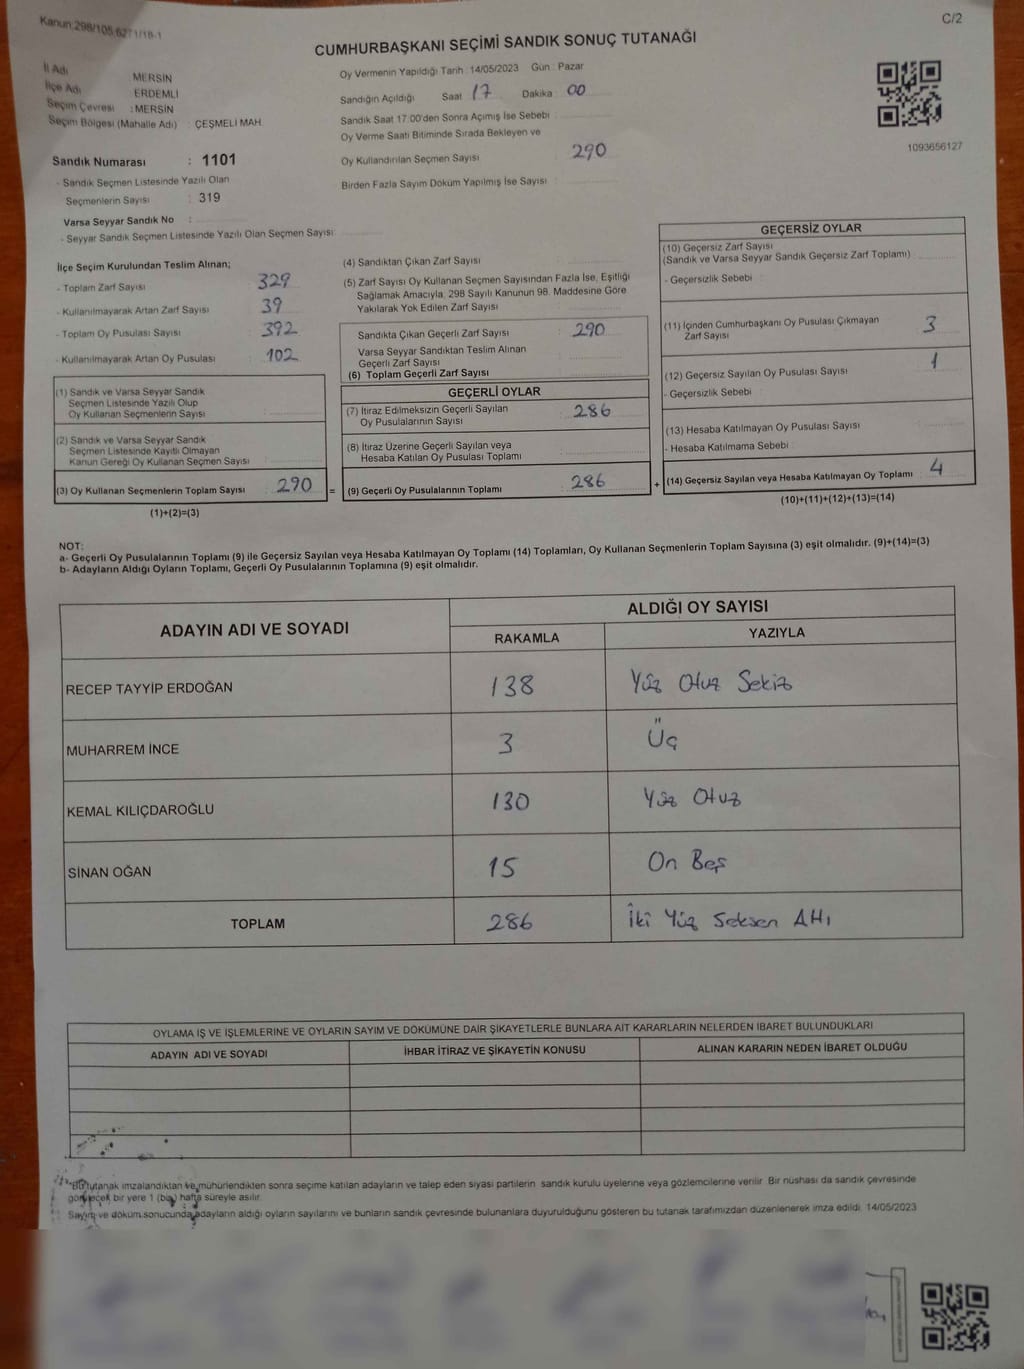 Kanun:298/105,6271/18-1
C/2
CUMHURBAŞKANI SEÇİMİ SANDIK SONUÇ TUTANAĞI
İl Adı MERSİN
İlçe Adı ERDEMLİ
Seçim Çevresi : MERSİN
Seçim Bölgesi (Mahalle Adı) : ÇEŞMELİ MAH.
Oy Vermenin Yapıldığı Tarih : 14/05/2023 Gün : Pazar
Sandığın Açıldığı Saat 17 Dakika : 00
Sandık Saat 17:00'den Sonra Açılmış İse Sebebi :
Oy Verme Saati Bitiminde Sırada Bekleyen ve
Oy Kullandırılan Seçmen Sayısı : 290
Birden Fazla Sayım Döküm Yapılmış İse Sayısı :
1093656127
Sandık Numarası : 1101
- Sandık Seçmen Listesinde Yazılı Olan
Seçmenlerin Sayısı : 319
Varsa Seyyar Sandık No :
- Seyyar Sandık Seçmen Listesinde Yazılı Olan Seçmen Sayısı:
İlçe Seçim Kurulundan Teslim Alınan;
- Toplam Zarf Sayısı : 329
- Kullanılmayarak Artan Zarf Sayısı : 39
- Toplam Oy Pusulası Sayısı : 392
- Kullanılmayarak Artan Oy Pusulası : 102
(1) Sandık ve Varsa Seyyar Sandık
Seçmen Listesinde Yazılı Olup
Oy Kullanan Seçmenlerin Sayısı :
(2) Sandık ve Varsa Seyyar Sandık
Seçmen Listesinde Kayıtlı Olmayan
Kanun Gereği Oy Kullanan Seçmen Sayısı :
(3) Oy Kullanan Seçmenlerin Toplam Sayısı : 290
(1)+(2)=(3)
(4) Sandıktan Çıkan Zarf Sayısı :
(5) Zarf Sayısı Oy Kullanan Seçmen Sayısından Fazla İse, Eşitliği
Sağlamak Amacıyla, 298 Sayılı Kanunun 98. Maddesine Göre
Yakılarak Yok Edilen Zarf Sayısı :
Sandıkta Çıkan Geçerli Zarf Sayısı : 290
Varsa Seyyar Sandıktan Teslim Alınan
Geçerli Zarf Sayısı :
(6) Toplam Geçerli Zarf Sayısı :
GEÇERLİ OYLAR
(7) İtiraz Edilmeksizin Geçerli Sayılan
Oy Pusulalarının Sayısı : 286
(8) İtiraz Üzerine Geçerli Sayılan veya
Hesaba Katılan Oy Pusulası Toplamı :
= (9) Geçerli Oy Pusulalarının Toplamı : 286 +
GEÇERSİZ OYLAR
(10) Geçersiz Zarf Sayısı
(Sandık ve Varsa Seyyar Sandık Geçersiz Zarf Toplamı) :
- Geçersizlik Sebebi :
(11) İçinden Cumhurbaşkanı Oy Pusulası Çıkmayan
Zarf Sayısı : 3
(12) Geçersiz Sayılan Oy Pusulası Sayısı : 1
- Geçersizlik Sebebi :
(13) Hesaba Katılmayan Oy Pusulası Sayısı :
- Hesaba Katılmama Sebebi :
(14) Geçersiz Sayılan veya Hesaba Katılmayan Oy Toplamı : 4
(10)+(11)+(12)+(13)=(14)
NOT:
a- Geçerli Oy Pusulalarının Toplamı (9) ile Geçersiz Sayılan veya Hesaba Katılmayan Oy Toplamı (14) Toplamları, Oy Kullanan Seçmenlerin Toplam Sayısına (3) eşit olmalıdır. (9)+(14)=(3)
b- Adayların Aldığı Oyların Toplamı, Geçerli Oy Pusulalarının Toplamına (9) eşit olmalıdır.
ADAYIN ADI VE SOYADI ALDIĞI OY SAYISI
RAKAMLA YAZIYLA
RECEP TAYYİP ERDOĞAN 138 Yüz Otuz Sekiz
MUHARREM İNCE 3 Üç
KEMAL KILIÇDAROĞLU 130 Yüz Otuz
SİNAN OĞAN 15 On Beş
TOPLAM 286 İki Yüz Seksen Altı
OYLAMA İŞ VE İŞLEMLERİNE VE OYLARIN SAYIM VE DÖKÜMÜNE DAİR ŞİKAYETLERLE BUNLARA AİT KARARLARIN NELERDEN İBARET BULUNDUKLARI
ADAYIN ADI VE SOYADI İHBAR İTİRAZ VE ŞİKAYETİN KONUSU ALINAN KARARIN NEDEN İBARET OLDUĞU
Bu tutanak imzalandıktan ve mühürlendikten sonra seçime katılan adayların ve talep eden siyasi partilerin sandık kurulu üyelerine veya gözlemcilerine verilir. Bir nüshası da sandık çevresinde
görülecek bir yere 1 (bir) hafta süreyle asılır.
Sayım ve döküm sonucunda adayların aldığı oyların sayılarını ve bunların sandık çevresinde bulunanlara duyurulduğunu gösteren bu tutanak tarafımızdan düzenlenerek imza edildi. 14/05/2023